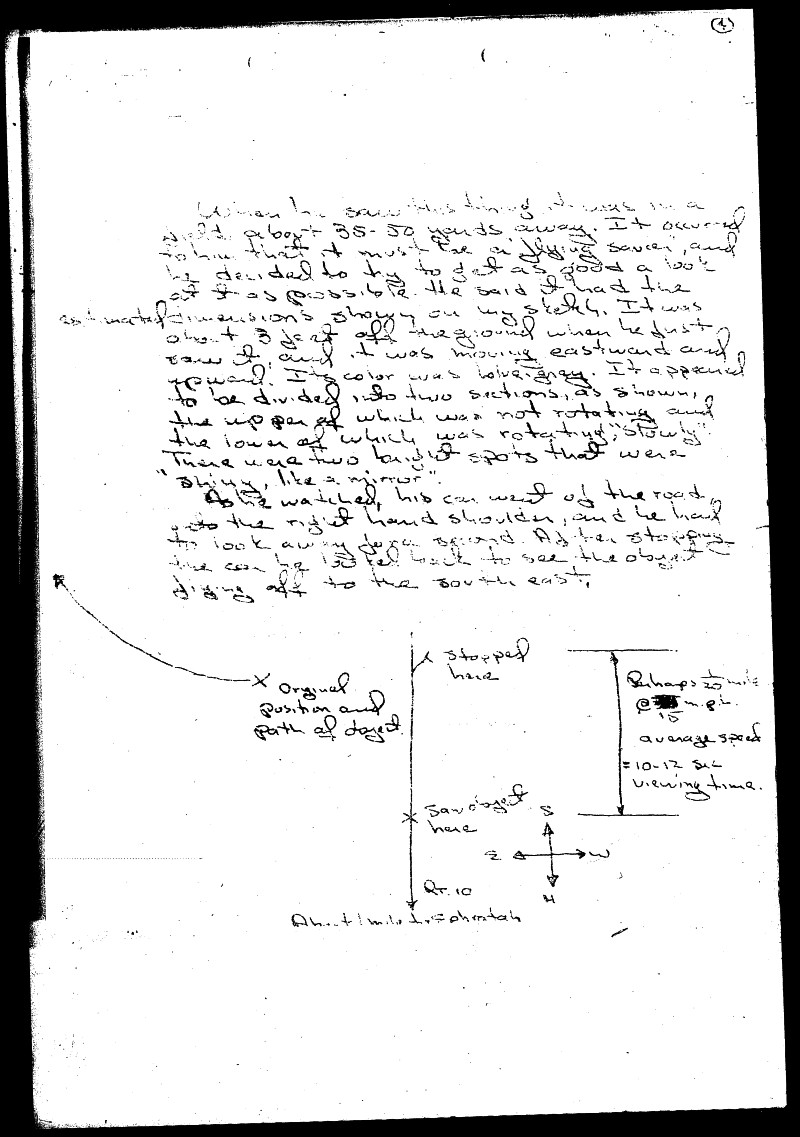 (4)
When he saw this thing it was in a
field about 35-50 yards away. It occured
to him that it must be a "flying saucer", and
he decided to try to get as good a look
at it as possible. He said it had the
estimated dimensions shown on my sketch. It was
about 3 feet off the ground when he first
saw it, and it was moving eastward and
upward. Its color was blue-grey. It appeared
to be divided into two sections, as shown,
the upper of which was not rotating and
the lower of which was rotating, "slowly".
There were two bright spots that were
"shiny, like a mirror".
As he watched, his car went off the road,
onto the right hand shoulder, and he had
to look away for a second. After stopping
the car he looked back to see the object
flying off to the south east.
Stopped
here
Original
position and
path of object
Perhaps 1/20 mile
@ 15 m.p.h.
average speed
=10-12 sec
viewing time.
Saw object
here
S
E W
N
Rt. 10
About 1 mile to